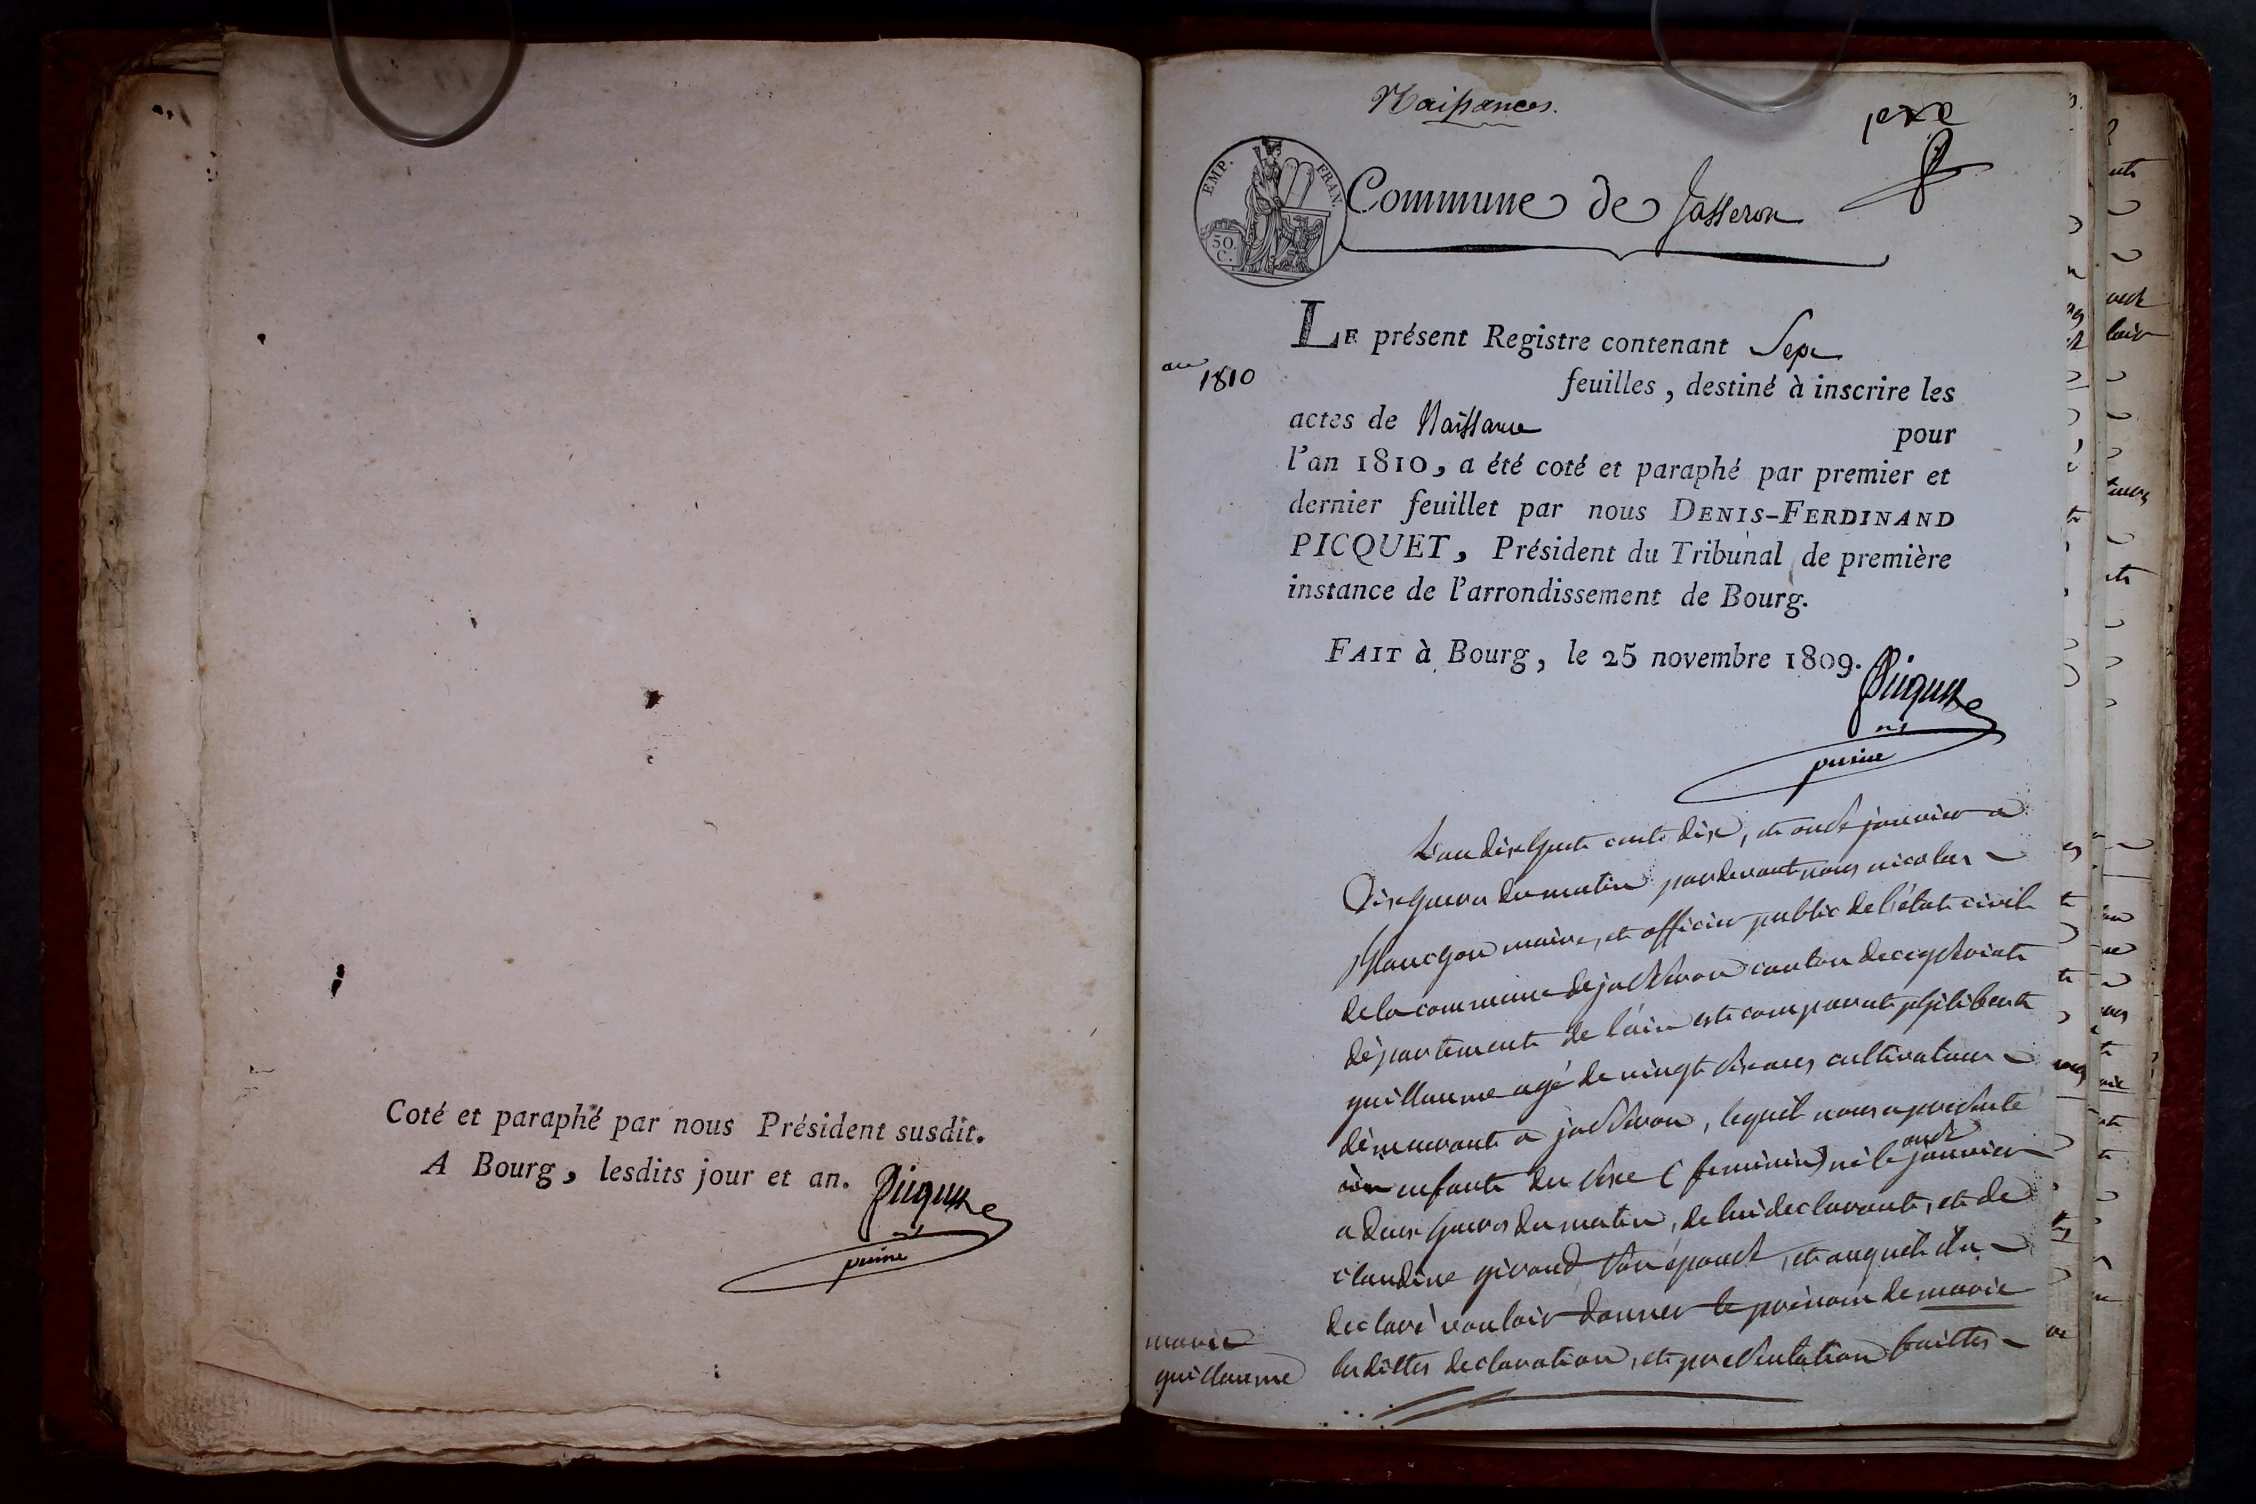 Coté et paraphé par nous Président susdit.
A Bourg, lesdits jour et an. Picquet
Naissances.
EMP. FRAN.
50. C.
Commune de Jasseron
LE présent Registre contenant Sept
feuilles, destiné à inscrire les
an 1810
actes de Naissance pour
l'an 1810, a été coté et paraphé par premier et
dernier feuillet par nous DENIS-FERDINAND
PICQUET, Président du Tribunal de première
instance de l'arrondissement de Bourg.
FAIT à Bourg, le 25 novembre 1809.
Picquet
L'an dix huit cent dix, et onze janvier a
Dix heures du matin pardevant nous nicolas
planchon maire, et officier public de l'état civil
de la commune de jasseron canton de ceyseriat
département de l'ain est comparut philibert
guillaume agé de vingt six ans cultivateur
démeurant a jasseron, lequel nous a presenté
un enfant du sexe (feminin) né le onze janvier
a deux heures du matin, de lui declarant, et de
claudine girard son épouse, et auquel il a
declaré vouloir donner le prénom de marie
marie
guillaume
les dittes declaration, et presentation faittes